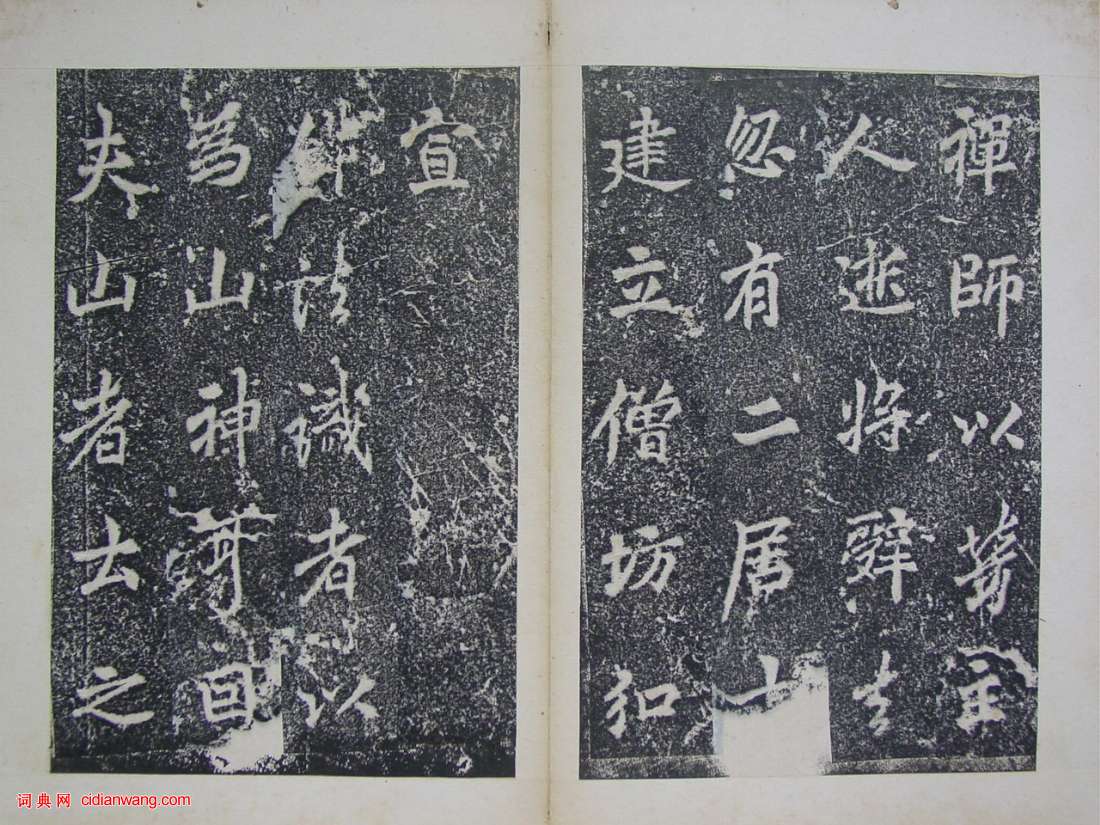 禪師以勞主
人逝將辭去
忽有二居士
建立僧坊弘
宣
法識者以
為山神耳目
夫山者土之
词典网 cidianwang.com